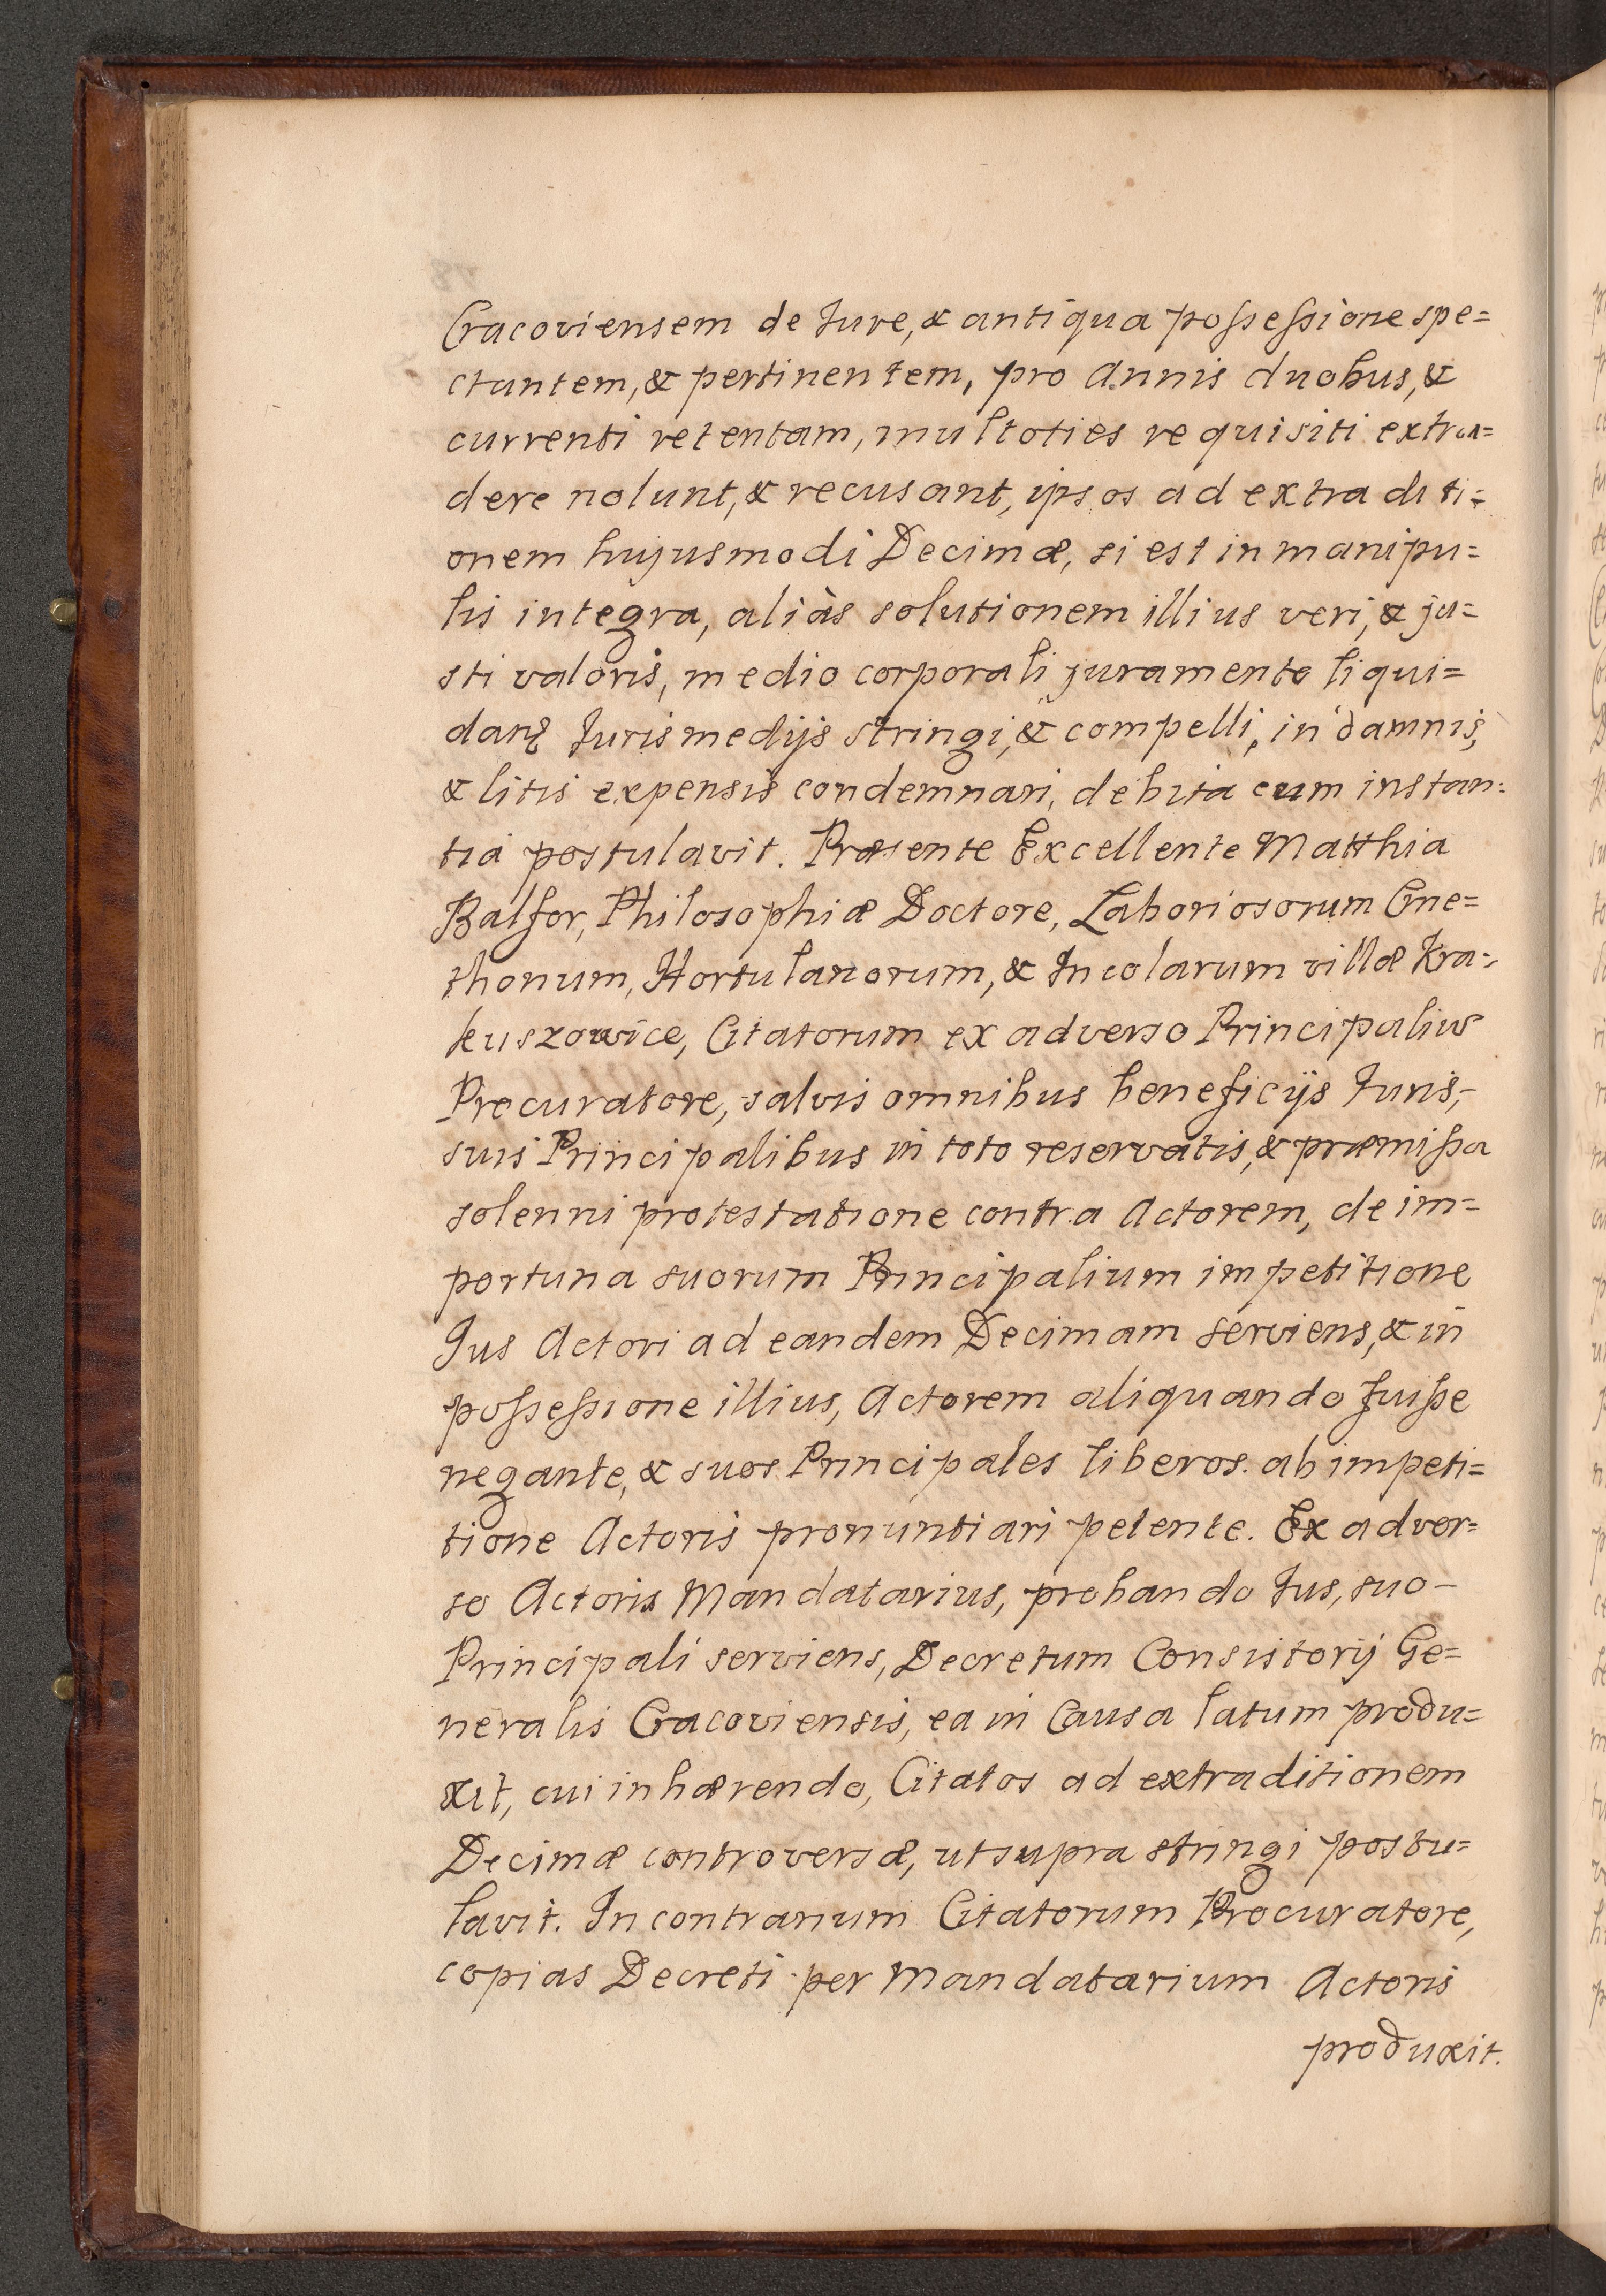 Cracoviensem de Jure, & antiqua possessione spe=
ctantem, & pertinentem, pro Annis duobus, &
currenti retentam, multoties requisiti extra=
dere nolunt, & recusant, ipsos ad extraditi=
onem hujusmodi Decimæ, si est in manipu=
lis integra, aliàs solutionem illius veri, & ju=
sti valoris, medio corporali juramento liqui=
danę Juris medijs stringi, & compelli, in damnis,
& litis expensis condemnari, debita cum instan=
tiá postulavit. Præsente Excellente Matthia
Balfor, Philosophiæ Doctore, Laboriosorum Cme=
thonum, Hortulanorum, & Incolarum villæ Kra=
kuszowice, Citatorum ex adverso Principalium
Procuratore, salvis omnibus beneficijs Juris,
suis Principalibus in toto reservatis, & præmissa
solenni protestatione contra Actorem, de im=
portuna suorum Principalium impetitione
Jus Actori ad eandem Decimam serviens, & in
possessione illius, Actorem aliquando fuisse
negante, & suos Principales liberos ab impeti=
tione Actoris pronuntiari petente. Ex adver=
so Actoris Mandatarius, probando Jus, suo
Principali serviens, Decretum Consistorij Ge=
neralis Cracoviensis, ea in Causa latum produ=
xit, cui inhærendo, Citatos ad extraditionem
Decimæ controversæ, ut supra stringi postu=
lavit. In contrarium Citatorum Procuratore,
copias Decreti per Mandatarium Actoris
produxit.